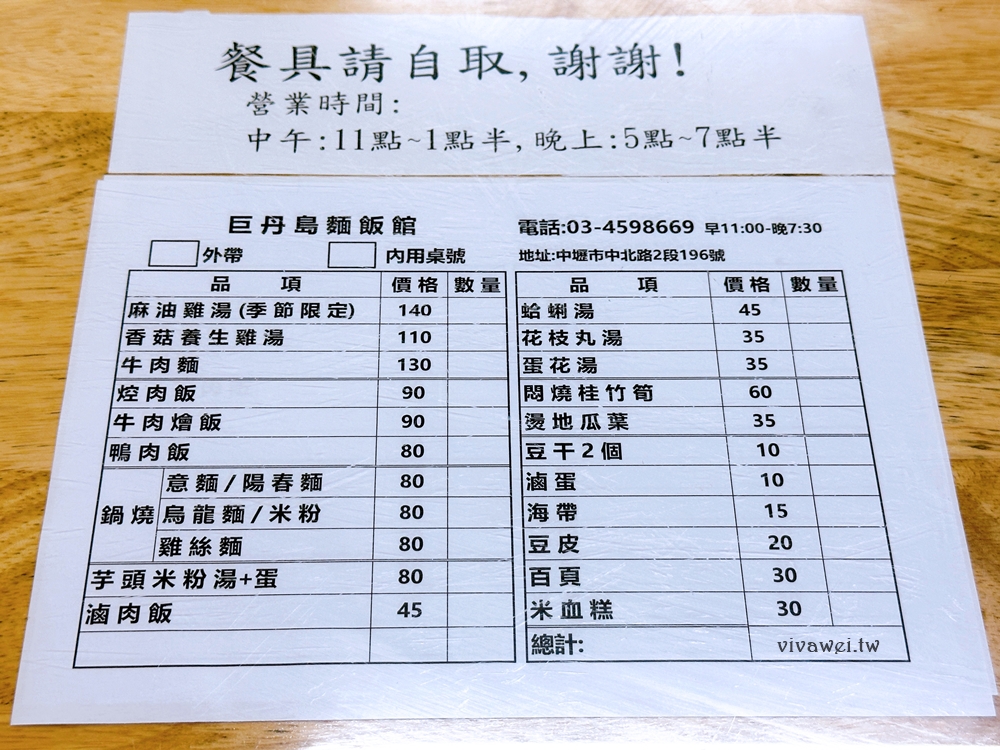 餐具請自取, 謝謝!
營業時間:
中午:11點~1點半, 晚上:5點~7點半
巨丹島麵飯館
電話:03-4598669 早11:00-晚7:30
外帶 內用桌號
地址:中壢市中北路2段196號
品項 價格 數量
麻油雞湯(季節限定) 140
香菇養生雞湯 110
牛肉麵 130
焢肉飯 90
牛肉燴飯 90
鴨肉飯 80
鍋燒
意麵/陽春麵 80
烏龍麵/米粉 80
雞絲麵 80
芋頭米粉湯+蛋 80
滷肉飯 45
品項 價格 數量
蛤蜊湯 45
花枝丸湯 35
蛋花湯 35
悶燒桂竹筍 60
燙地瓜葉 35
豆干2個 10
滷蛋 10
海帶 15
豆皮 20
百頁 30
米血糕 30
總計:
vivawei.tw